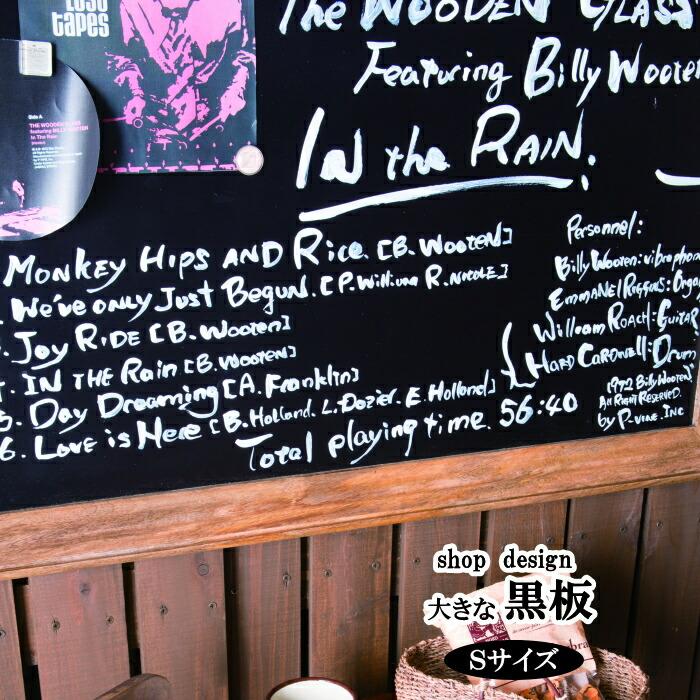 LOST
tapes
The WOODEN GLASS
Featuring Billy Wooten
IN the RAIN.
Side A
THE WOODEN GLASS
featuring BILLY WOOTEN
In The Rain
MONKEY HIPS AND RICE [B. WOOTEN]
We've only Just Begun. [P. William R. NICOLE]
Joy RIDE [B. Wooten]
IN THE Rain [B. WOOTEN]
5. Day Dreaming [A. Franklin]
6. LOVE is Here [B. Holland. L. Dozier. E. Holland]
Total playing time. 56:40
Personnel:
Billy Wooten: vibraphon
EMMANEL RIGGINS: Orga
William ROACH: GUITAR
HARD CARDWELL: Drum
1972 Billy WOOTEN
All Right Reserved.
by P-VINE. INC
shop design
大きな 黒板
Sサイズ